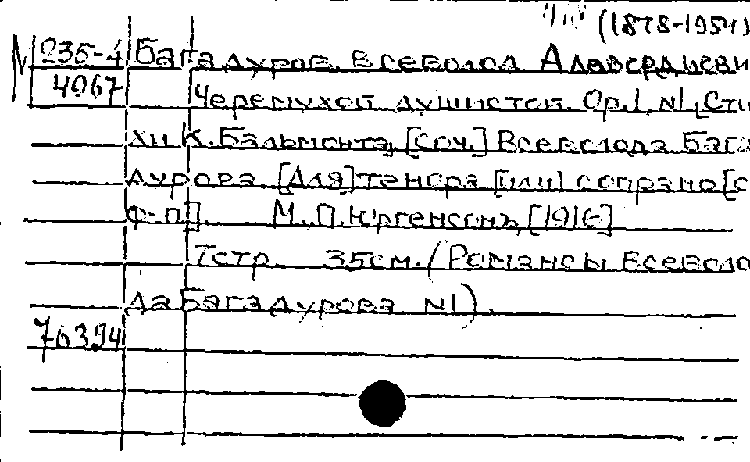 (1878-1954)
N 235-4 Багадуров Всеволод Алавердиеви
4067 Черемухой душистой. Op.1, N1, Сти
хи К. Бальмонта, [соч.] Всеволода Бага
дурова. [Для] тенора [или] сопрано [с
ф-п]]. М. П. Юргенсонъ, [1916]
7стр. 35см. (Романсы Всеволо
да Багадурова N1).
76394